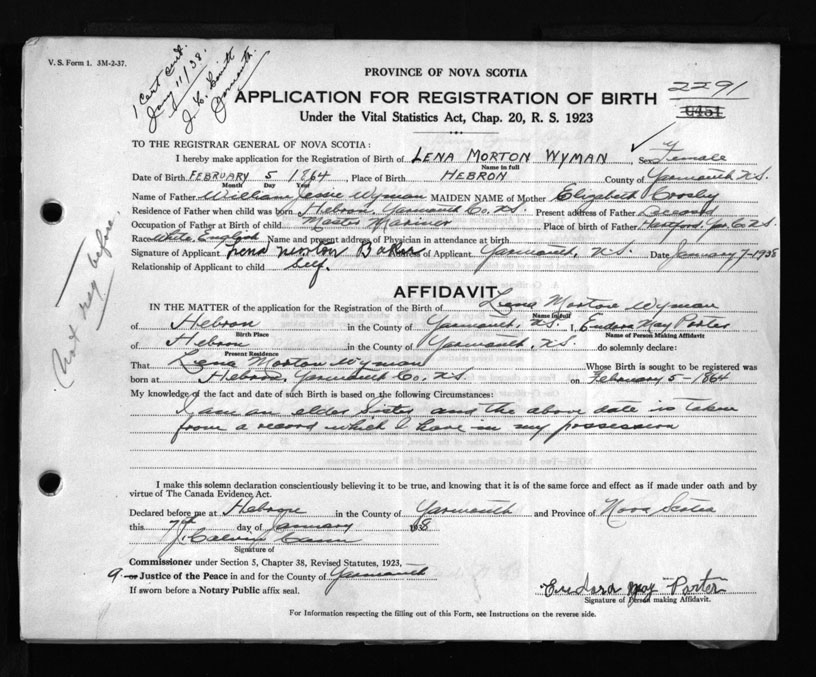 V. S. Form 1. 3M-2-37.
1 Cert
Jany 11/38.
J. C. Smith
PROVINCE OF NOVA SCOTIA
2291
APPLICATION FOR REGISTRATION OF BIRTH
U451
Under the Vital Statistics Act, Chap. 20, R. S. 1923
TO THE REGISTRAR GENERAL OF NOVA SCOTIA:
I hereby make application for the Registration of Birth of LENA MORTON WYMAN, Sex Female
Name in full
Date of Birth FEBRUARY 5 1864, Place of Birth HEBRON County of Yarmouth N.S.
Month Day Year
Name of Father William Wyman MAIDEN NAME of Mother Elizabeth Crosby
Residence of Father when child was born Hebron, Yarmouth Co. N.S. Present address of Father Deceased
Occupation of Father at Birth of child Master Mariner Place of birth of Father Hartford, Yar. Co. N.S.
Race White English Name and present address of Physician in attendance at birth
Signature of Applicant Lena Morton Baker of Applicant Yarmouth, N.S. Date January 7-1938
Relationship of Applicant to child Self.
Not reg before.
AFFIDAVIT
IN THE MATTER of the application for the Registration of the Birth of Lena Morton Wyman
Name in full
of Hebron in the County of Yarmouth, N.S. I, Eudora May Porter
Birth Place Name of Person Making Affidavit
of Hebron in the County of Yarmouth, N.S. do solemnly declare:
Present Residence
That Lena Morton Wyman Whose Birth is sought to be registered was
born at Hebron, Yarmouth Co., N.S. on February 5-1864
My knowledge of the fact and date of such Birth is based on the following Circumstances:
I am an elder Sister and the above date is taken
from a record which I have in my possession
I make this solemn declaration conscientiously believing it to be true, and knowing that it is of the same force and effect as if made under oath and by
virtue of The Canada Evidence Act.
Declared before me at Hebron in the County of Yarmouth and Province of Nova Scotia
this 7th day of January
J. Calvin Cann
Signature of
Commissioner under Section 5, Chapter 38, Revised Statutes, 1923,
a or Justice of the Peace in and for the County of Yarmouth
If sworn before a Notary Public affix seal.
Eudora May Porter
Signature of Person making Affidavit.
For Information respecting the filling out of this Form, see Instructions on the reverse side.